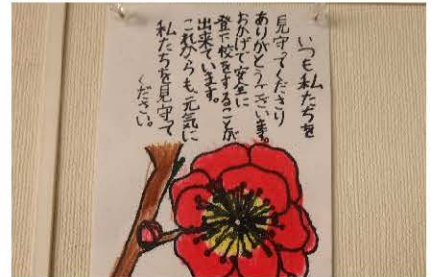 いつも私たちを
見守ってくださり
ありがとうございます。
おかげで安全に
登下校をすることが
出来ています。
これからも、元気に
私たちを見守って
ください。